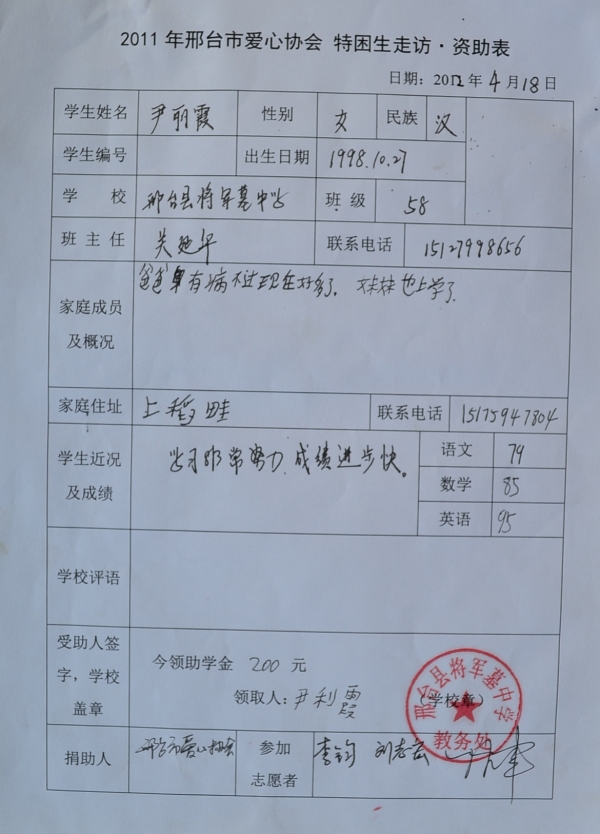 2011年邢台市爱心协会 特困生走访·资助表
日期：2012年4月18日
学生姓名 尹丽霞 性别 女 民族 汉
学生编号 出生日期 1998.10.27
学校 邢台县将军墓中学 班级 58
班主任 关 联系电话 15127998656
爸爸有病不过现在好多了。妹妹也上学了
家庭成员
及概况
家庭住址 上稻畦 联系电话 15175947804
学生近况
及成绩
学习非常努力,成绩进步快。
语文 79
数学 85
英语 95
学校评语
受助人签
字，学校
盖章
今领助学金 200 元
领取人：尹利霞 （学校章）
邢台县将军墓中学
教务处
捐助人 邢台市爱心协会 参加
志愿者
李钧 刘志云